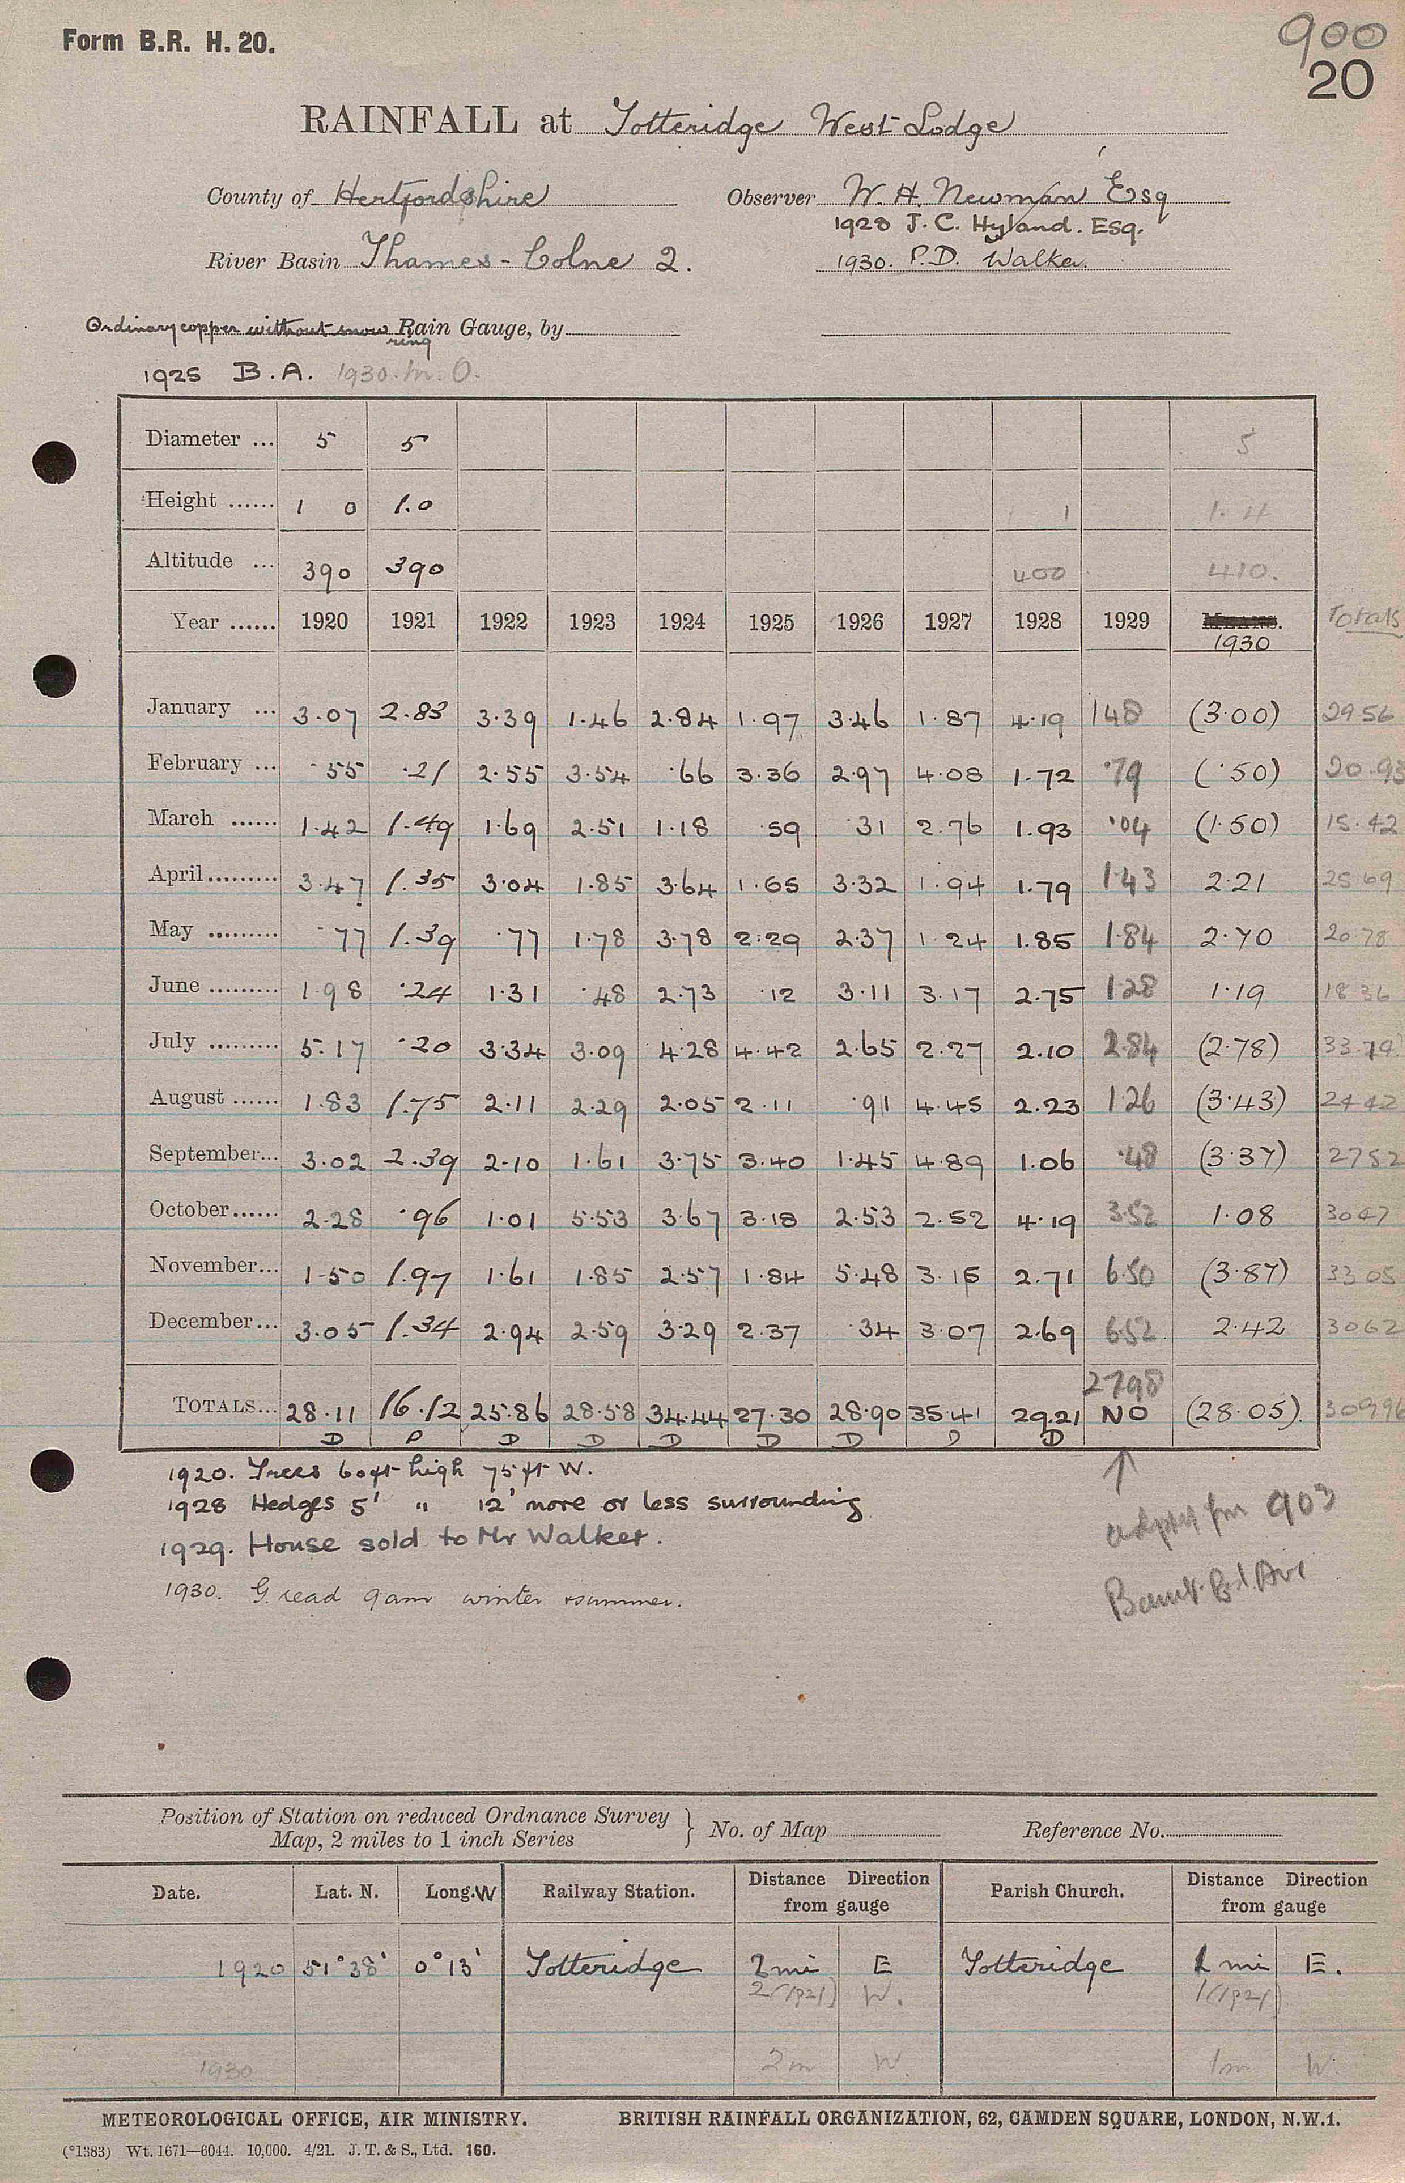 Form B.R. H. 20.
900
20
RAINFALL at Totteridge West Lodge
County of Hertfordshire Observer W. H. Newman Esq
1928 J. C. Hyland. Esq.
River Basin Thames - Colne 2. 1930. P.D. Walker.
Ordinary copper without snow ring Rain Gauge, by
1925 B.A. 1930. M. O.
Diameter ... 5 5 5
Height ...... 1 0 1.0 1 1. 4
Altitude ... 390 390 400 410.
Year ...... 1920 1921 1922 1923 1924 1925 1926 1927 1928 1929 MEANS. 1930 Totals
January ... 3.07 2.83 3.39 1.46 2.84 1.97 3.46 1.87 4.19 1 48 (3.00) 29 56
February ... .55 .21 2.55 3.54 .66 3.36 2.97 4.08 1.72 .79 (.50) 20.93
March ...... 1.42 1.49 1.69 2.51 1.18 .59 .31 2.76 1.93 .04 (1.50) 15.42
April ......... 3.47 1.35 3.04 1.85 3.64 1.65 3.32 1.94 1.79 1.43 2.21 25 69
May ......... .77 1.39 .77 1.78 3.78 2.29 2.37 1.24 1.85 1.84 2.70 20.78
June ......... 1.98 .24 1.31 .48 2.73 .12 3.11 3.17 2.75 1.28 1.19 18 36
July ......... 5.17 .20 3.34 3.09 4.28 4.42 2.65 2.27 2.10 2.84 (2.78) 33.14
August ...... 1.83 1.75 2.11 2.29 2.05 2.11 .91 4.45 2.23 1 26 (3.43) 24 42
September... 3.02 2.39 2.10 1.61 3.75 3.40 1.45 4.89 1.06 .48 (3.37) 27 52
October...... 2.28 .96 1.01 5.53 3.67 3.18 2.53 2.52 4.19 3.52 1.08 30 47
November... 1.50 1.97 1.61 1.85 2.57 1.84 5.48 3.15 2.71 6.50 (3.87) 33 05
December... 3.05 1.34 2.94 2.59 3.29 2.37 .34 3.07 2.69 6.52 2.42 30 62
2798
TOTALS... 28.11 16.12 25.86 28.58 34.44 27.30 28.90 35.41 29.21 NO (28.05) 309 96
D P D D D D D D D
1920. Trees 60 ft high 75 ft W.
1928 Hedges 5' " 12' more or less surrounding
1929. House sold to Mr Walker.
1930. G. read 9am winter + summer.
903
Position of Station on reduced Ordnance Survey Map, 2 miles to 1 inch Series } No. of Map Reference No.
Date. Lat. N. Long. W Railway Station. Distance Direction from gauge Parish Church. Distance Direction from gauge
1920 51° 38' 0° 13' Totteridge 2 mi E Totteridge 1 mi E.
2 (1921) W. 1 (1921)
1930 2 m W 1 m W.
METEOROLOGICAL OFFICE, AIR MINISTRY. BRITISH RAINFALL ORGANIZATION, 62, CAMDEN SQUARE, LONDON, N.W.1.
(*1383) Wt. 1671—6044. 10,000. 4/21. J. T. & S., Ltd. 160.